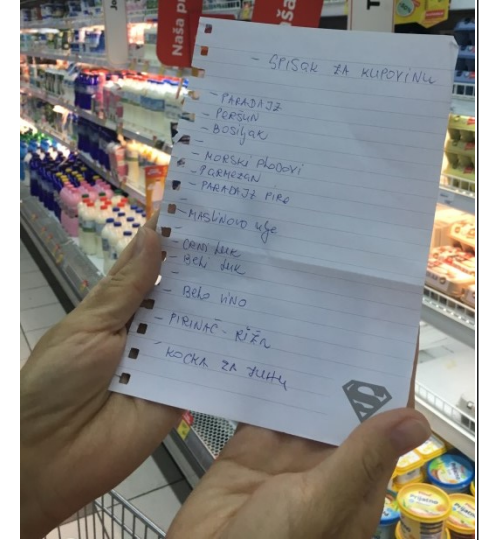 Naša
- SPISAK ZA KUPOVINU
- PARADAJZ
- PERŠUN
- BOSILJAK
-
- MORSKI PLODOVI
- PARMEZAN
- PARADAJZ PIRE
-
- MASLINOVO ulje
-
- CRNI LUK
- BELI LUK
-
- BELO VINO
- PIRINAČ - RIŽA
- KOCKA ZA SUPU
S